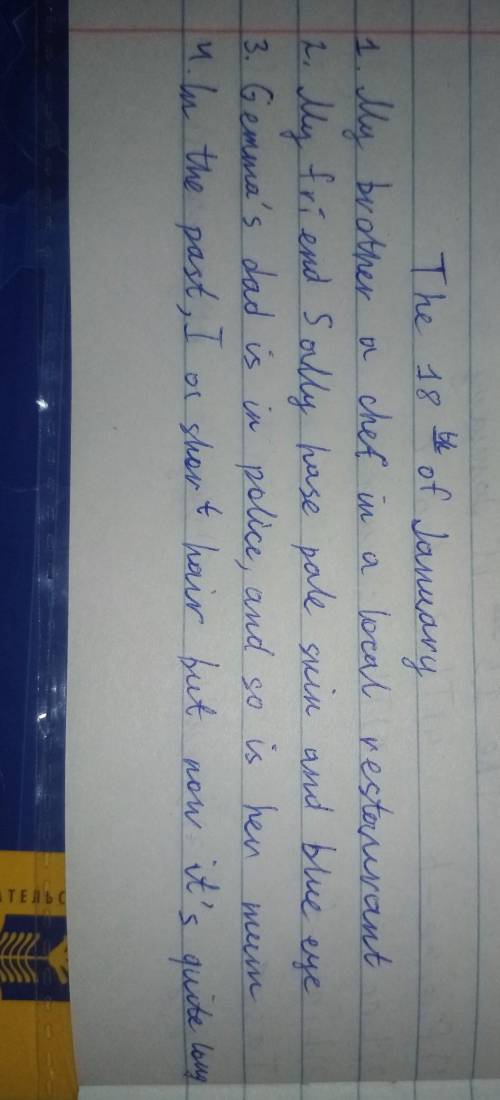 The 18th of January
1. My brother a chef in a local restaurant
2. My friend Sally hase pale skin and blue eye
3. Gemma's dad is in police, and so is her mum
4. In the past, I or short hair but now it's quite long